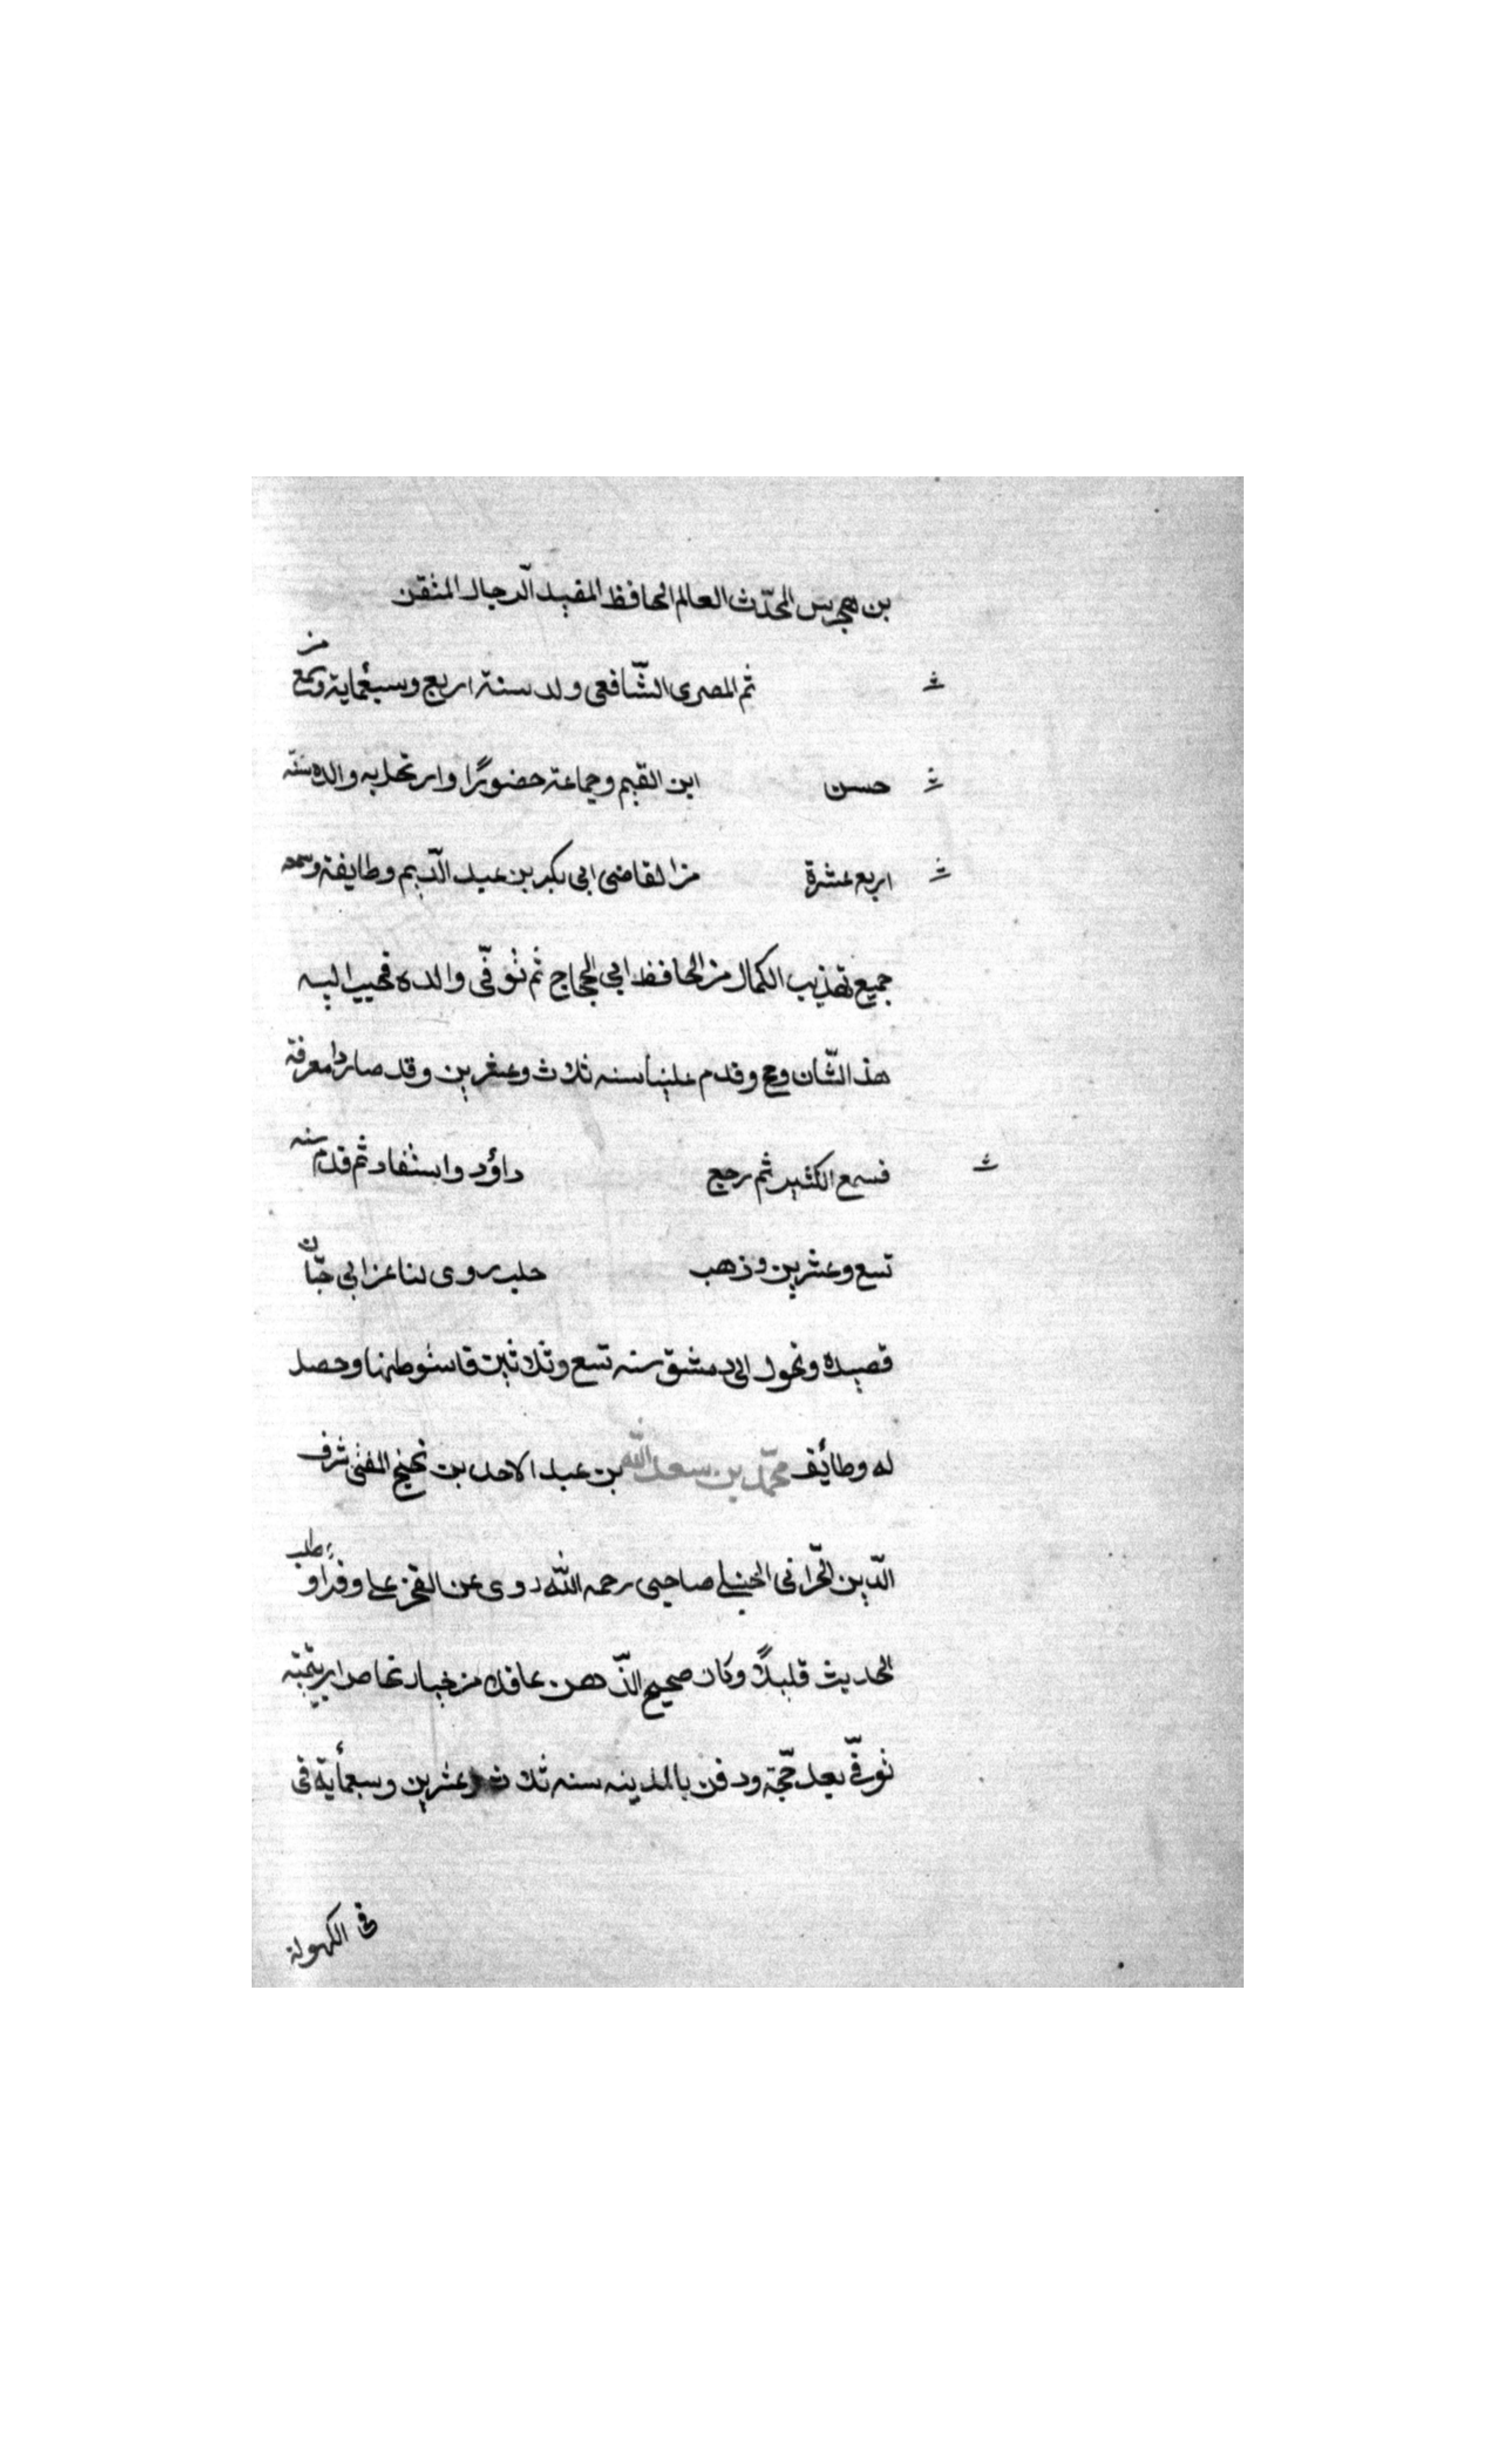 بن هجرس المحدّث العالم الحافظ المفيد الرحال المتقن
ثم المصرى الشّافعى ولد سنة اربع وسبعماية وسمع من
حسن ابن القيم وجماعة حضورًا وارتحل به والده سنه
اربع عشرة من القاضى ابى بكر بن عبد الدّيم وطايفة وسمعه
جميع تهذيب الكمال من الحافظ ابى الحجاج ثم توفّى والده فحبب اليه
هذ الشّان وحج وقدم علينا سنه ثلاث وعشرين وقد صار ذا معرفة
فسمع الكثير ثم رجع داؤد واستفاد ثم قدم سنه
تسع وعشرين وذهب حلب روى لنا عن ابى حبّان
قصيده وتحول الى دمشق سنه تسع وثلاثين فاستوطنها وحصل
له وطائف محمّد بن سعد اللّه بن عبد الاحد بن نجيح المفتى شرف
الدّين الحرّانى الحنبلى صاحبى رحمه اللّه روى عن الفخر على وقرا وطلب
الحديث قليلاً وكان صحيح الذّهن عاقلا من خيار
توفّى بعد حجّة ودفن بالمدينه سنه ثلاث وعشرين وسبعمأية فى
فى الكهولة